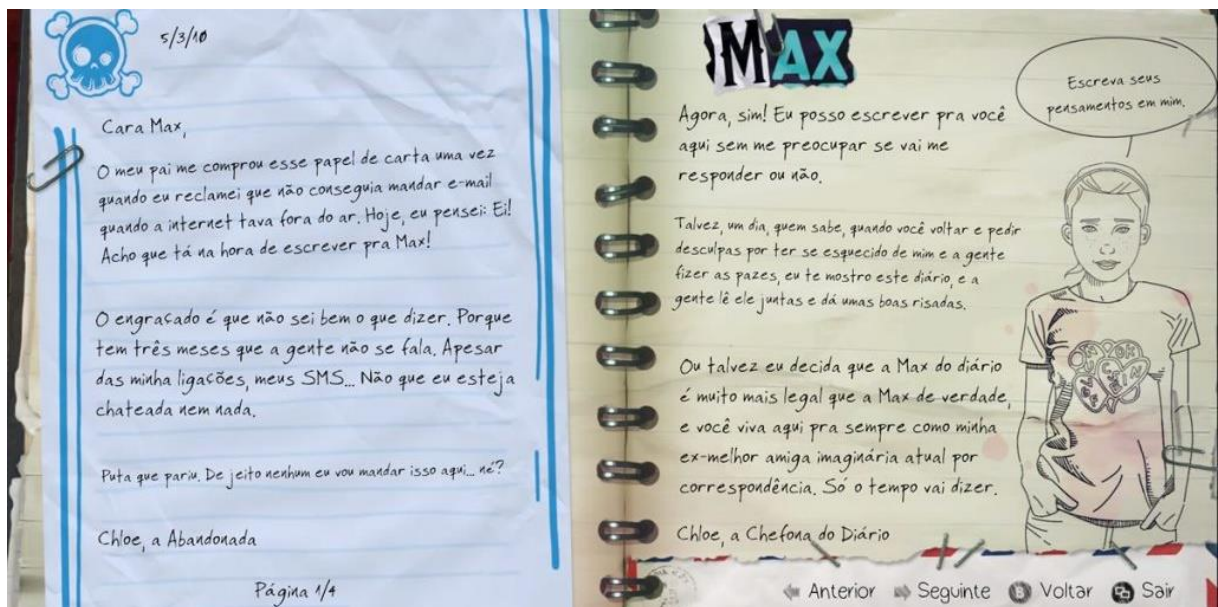 5/3/10
Cara Max,
O meu pai me comprou esse papel de carta uma vez
quando eu reclamei que não conseguia mandar e-mail
quando a internet tava fora do ar. Hoje, eu pensei: Ei!
Acho que tá na hora de escrever pra Max!
O engraçado é que não sei bem o que dizer. Porque
tem três meses que a gente não se fala. Apesar
das minha ligações, meus SMS... Não que eu esteja
chateada nem nada.
Puta que pariu. De jeito nenhum eu vou mandar isso aqui... né?
Chloe, a Abandonada
Página 1/4
MAX
Agora, sim! Eu posso escrever pra você
aqui sem me preocupar se vai me
responder ou não.
Talvez, um dia, quem sabe, quando você voltar e pedir
desculpas por ter se esquecido de mim e a gente
fizer as pazes, eu te mostro este diário, e a
gente lê ele juntas e dá umas boas risadas.
Ou talvez eu decida que a Max do diário
é muito mais legal que a Max de verdade,
e você viva aqui pra sempre como minha
ex-melhor amiga imaginária atual por
correspondência. Só o tempo vai dizer.
Chloe, a Chefona do Diário
Escreva seus
pensamentos em mim.
Anterior Seguinte B Voltar Sair